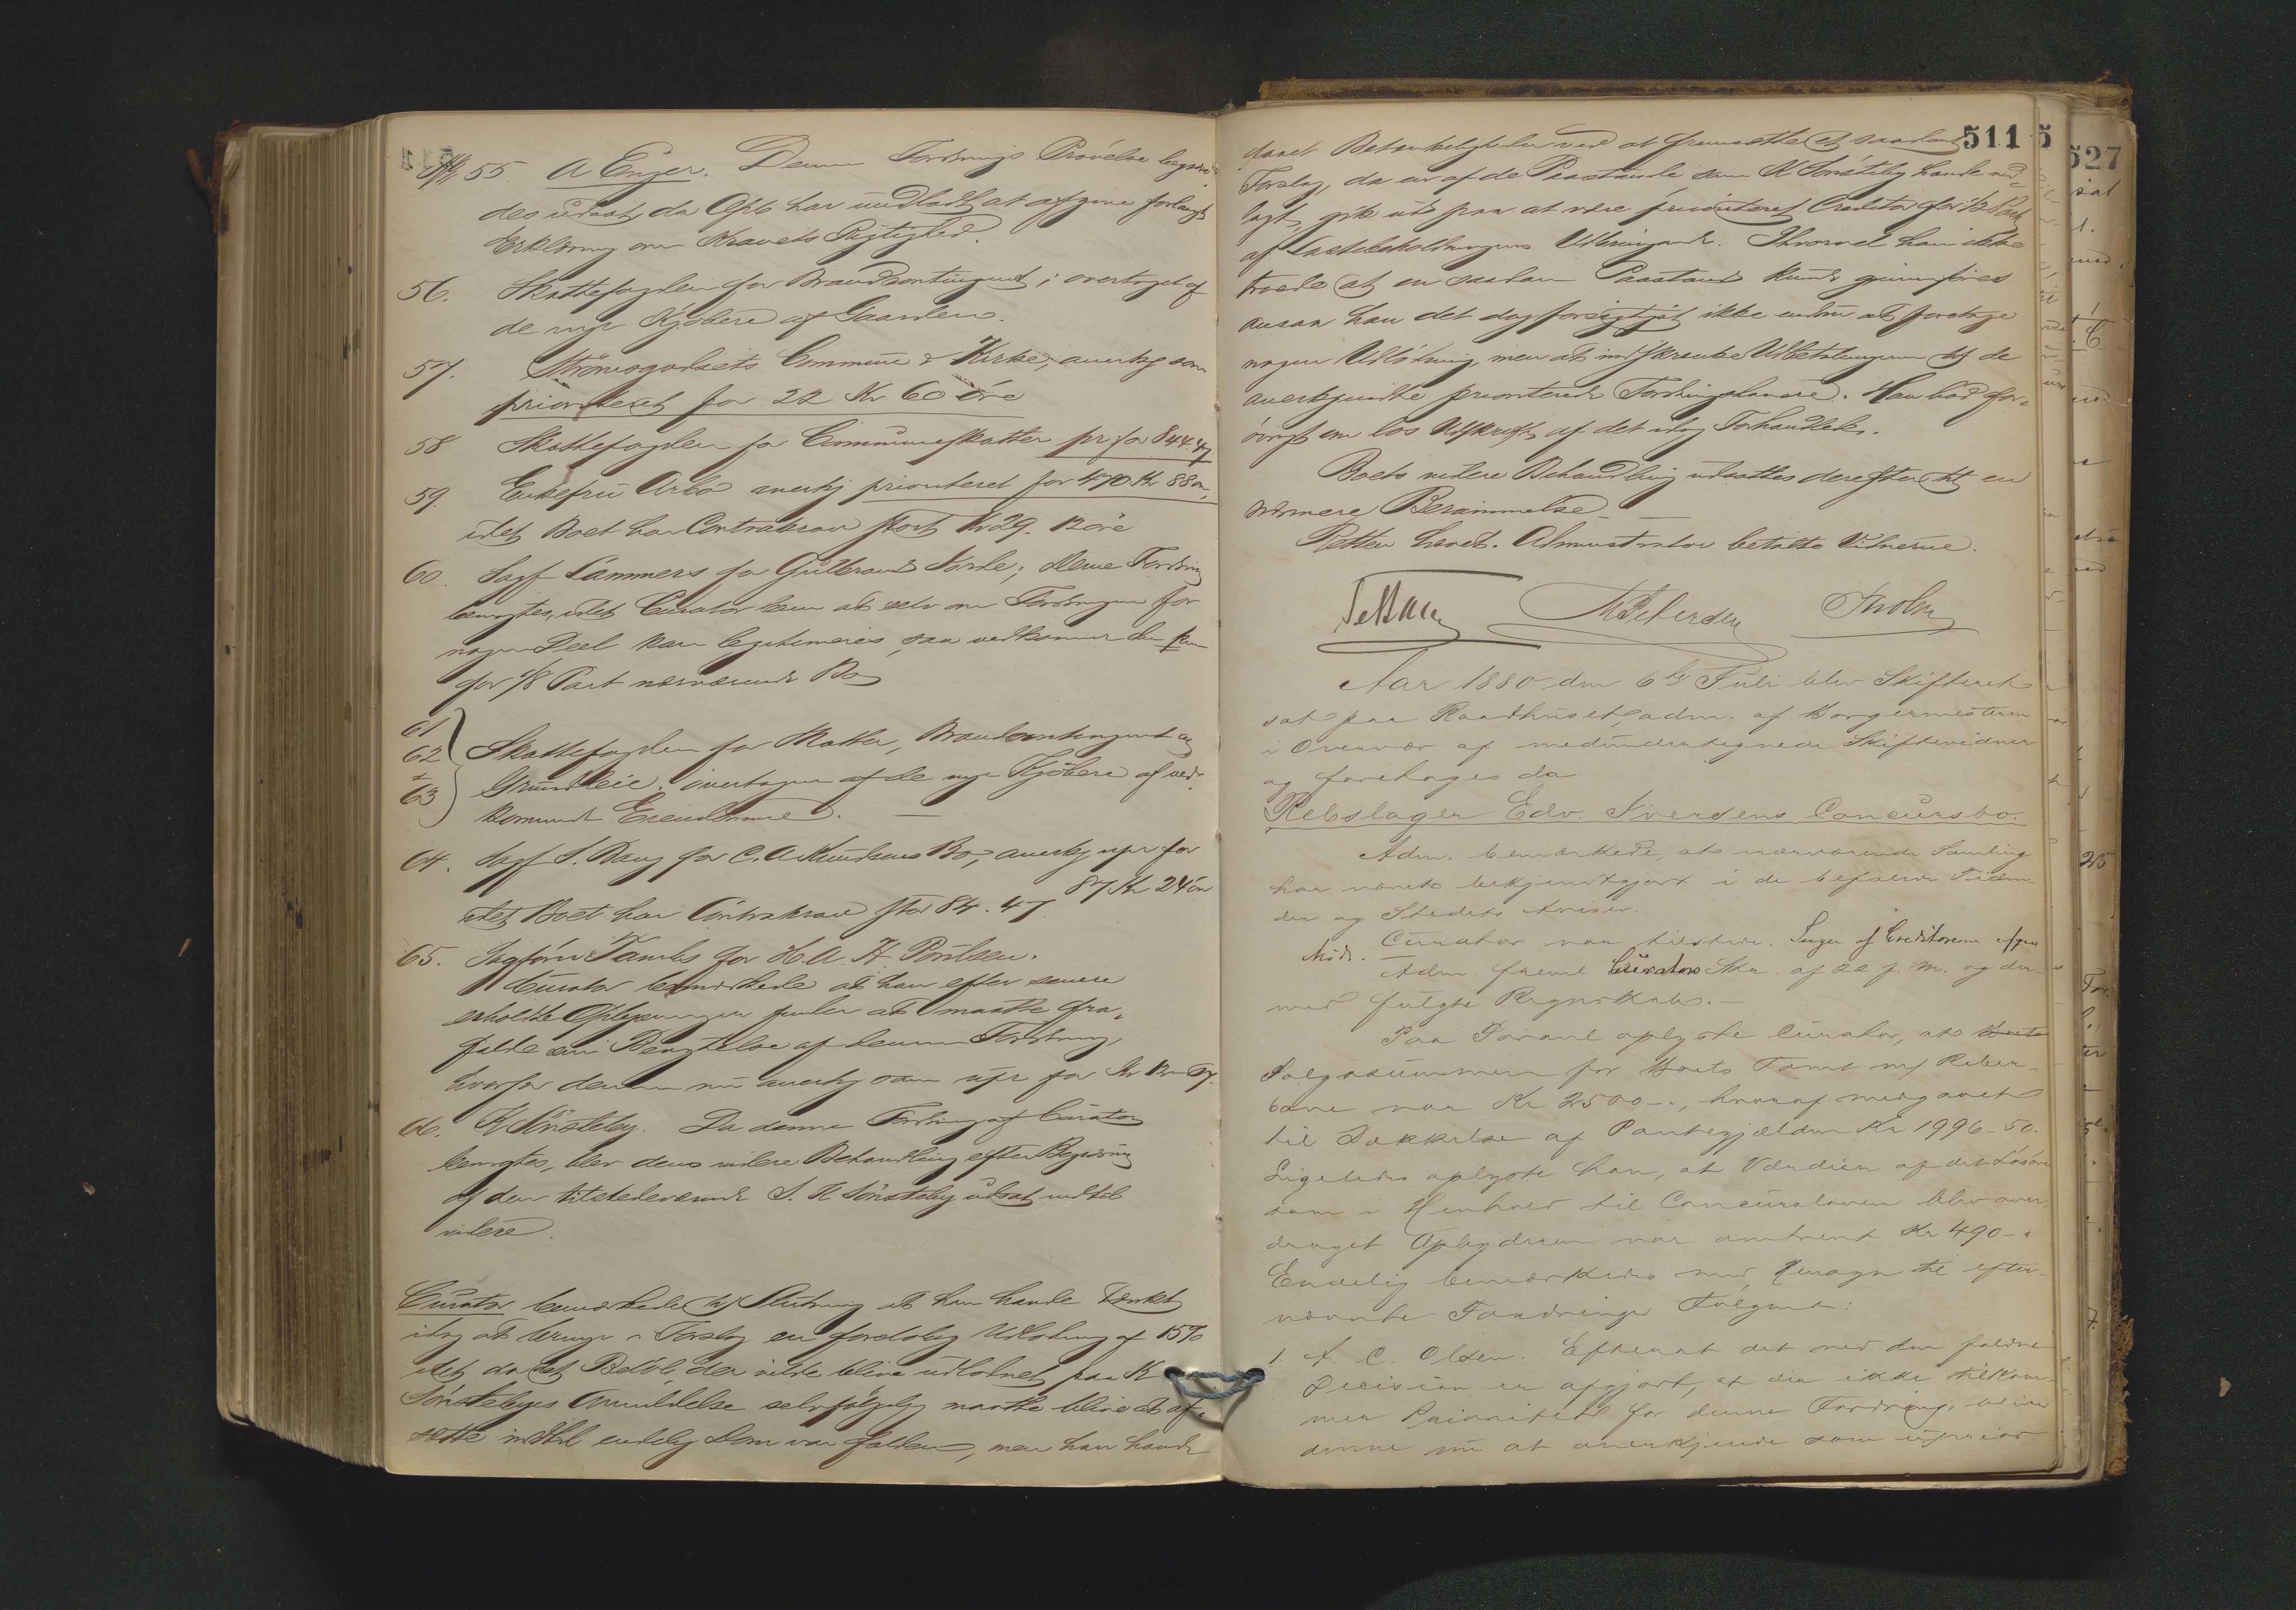 55 A Enger. Denne Fordrings Prøvelse begjæ-
des udsat, da har undladt at afgive forlangt
Erklæring om Kravets Rigtighed.
56. Skattefogden for Brandcontingent; overtaget af
de nye Kjøbere af Gaarden.
57. Strømsgodsets Commune & Kirke; anerkj som
prioriteret for 22 Kr 60 øre
58 Skattefogden for Communeskatter pr for 844.47
59. Enkefru Arbo anerkj prioriteret for 470 Kr 88 ør,
idet Boet har Contrakrav stort Kr 29. 12 øre
60. Sagf Lammers for Gulbrand; denne Fordring
benegtes, idet Curator at selv om Fordringen for
nogen Deel kan legitimeres, saa vedkommer den kun
for 1/8 Part nærværende Bo
61
62
&
63
Skattefogden for Skatter, Brandcontingent og
Grundleie. overtagen af de nye Kjøbere af ved-
kommende Eiendomme.
64. Sagf S. Bang for C. A Knudsens Bo; anerkj upr for
87 Kr 24 ør
idet Boet har Contrakrav stor 84.47
65. Sagfører Tambs for H. A. H Poulsen.
Curator bemærkede at han efter senere
erholdte Oplysninger finder at maatte fra-
falde sin Benegtelse af denne Fordring,
hvorfor denne nu anerkj som upr for Kr
66. K Sønsteby. Da denne Fordring af Curator
benegtes, blev dens videre Behandling efter Begjæring
af den tilstedeværende S. K Sønsteby udsat indtil
videre.
Curator bemærkede til Slutning at han havde tænkt
idag at bringe i Forslag en foreløbig Udlodning af 15%
idet da det Beløb, der vilde blive udlodnet paa K
Sønstebyes Anmeldelse selvfølgelig maatte blive at af-
sætte indtil endelig Dom var falden, men han havde
511
5
527
Betænkeligheder ved at fremsætte et saadant
Forslag, da en af de Paastande som K Sønsteby havde ned-
lagt, gik ud paa at være prioriteret Creditor for 1/2 Part
af Udbringende. Ihvorvel han ikke
troede at en saadan Paastand kunde gjennemføres
ansaa han det dog forsigtigst ikke endnu at foretage
nogen Udlodning, men at indskrænke Udbetalingerne til de
anerkjendte prioriterede Fordringshavere. Han bad for-
øvrigt om løs Udskrift af det idag Forhandlede.
Boets videre Behandling udsattes derefter til en
nærmere Berammelse
Retten hævet. Administrator betalte Vidnerne.
Aar 1880 den 6te Juli blev Skifteret
sat paa Raadhuset, adm. af Borgermesteren
i Overvær af medundertegnede Skiftevidner
og foretoges da
Rebslager Edv. Iversens Concursbo.
Adm. bemærkede, at nærværende Samling
har været bekjendtgjort i de befalede Tiden-
der og Stedets Aviser.
Curator var tilstede. Ingen af Creditorerne afgav
Møde.
Adm. freml Curators Skr. af 22 f. M. og der-
med fulgte Regnskab.
Paa Foranl oplyste Curator, at Boets
Salgssummen for Boets Tomt m/ Reber-
bane var Kr 2500 –, hvoraf medgaaet
til Dækkelse af Pantegjælden Kr 1996 – 50.
Ligeledes oplyste han, at Værdien af det Løsøre
som i Henhold til Concursloven blev over-
draget Opbyderen var omtrent Kr 490 –
Endelig bemærkedes med Hensyn til efter-
nævnte Fordringer Følgende:
1. A. C. Olsen. Efterat det ved den faldne
Decision er afgjort, at der ikke tilkom-
mer Prioritet for denne Fordring, bliver
denne nu at anerkjende som uprior